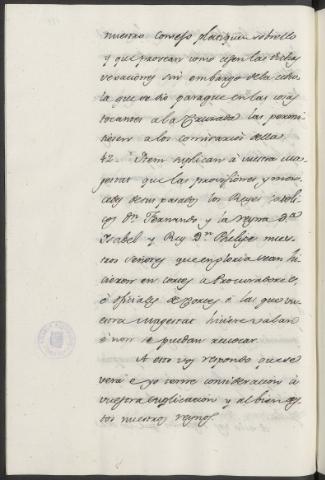 nuestro Consejo platiquen sobrello
y que provean como cesen las dichas
vexaciones sin embargo de la cedu
la que se dió para que en las cosas
tocantes a la Cruzada las
a los comisarios della
42. Item suplican á vuestra ma
gestad que las provissiones y merce
des de sus pasados los Reyes catoli
cos Dn. Fernando y la reyna Da.
Isabel y Rey Dn. Phelipe nues
tros Señores que en gloria sean hi
cieron en cortes a Procuradores,
é oficiales de Cortes é las que vu
estra Magestad hiciere valan
é non se puedan revocar.
A esto vos respondo que se
verá e yo terne consideracion á
vuestra suplicacion y al bien de es
tos nuestros reynos